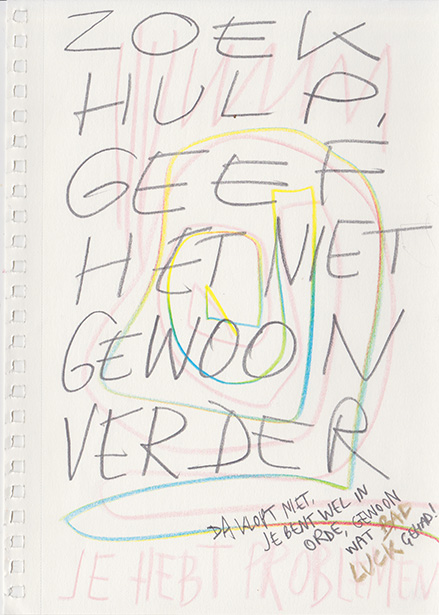 ZOEK
HULP,
GEEF
HET NIET
GEWOON
VERDER
DA KLOPT NIET,
JE BENT WEL IN
ORDE, GEWOON
WAT BAD
LUCK GEHAD!
JE HEBT PROBLEMEN